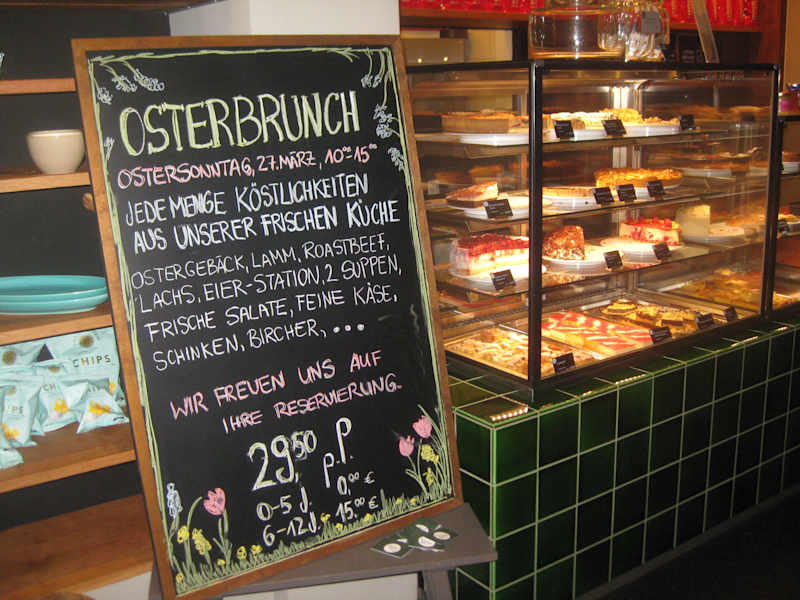 OSTERBRUNCH
OSTERSONNTAG, 27. MÄRZ, 10⁰⁰-15⁰⁰
JEDE MENGE KÖSTLICHKEITEN
AUS UNSERER FRISCHEN KÜCHE
OSTERGEBÄCK, LAMM, ROASTBEEF,
LACHS, EIER-STATION, 2 SUPPEN,
FRISCHE SALATE, FEINE KÄSE,
SCHINKEN, BIRCHER, ...
WIR FREUEN UNS AUF
IHRE RESERVIERUNG.
29.50 P.P.
0-5 J. 0.00 €
6-12 J. 15.00 €
CHIPS
CHIPS